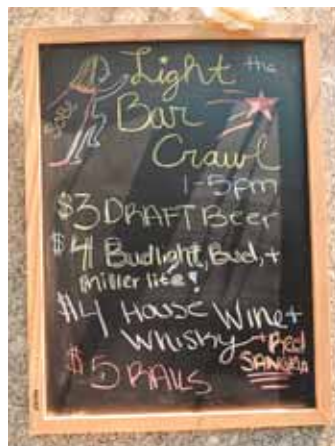 Light the
Bar
Crawl
1-5pm
$3 DRAFT Beer
$4 Budlight, Bud, +
Miller lite!
$4 House Wine +
Whisky + Red
SANGRIA
$5 RAILS